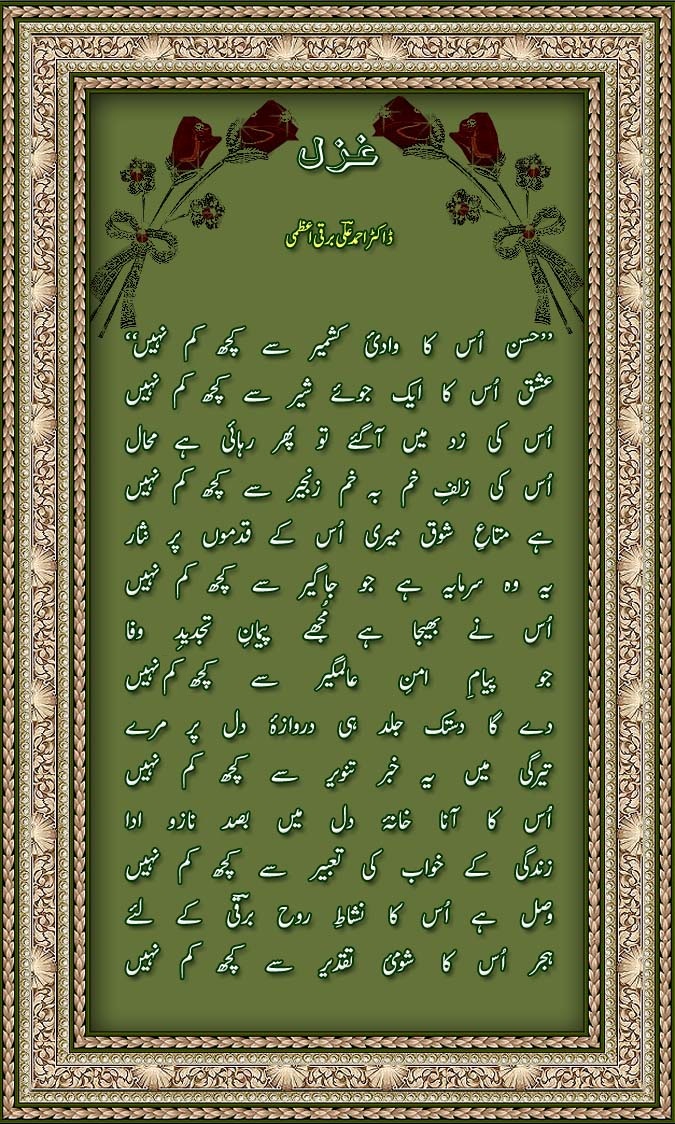 غزل
ڈاکٹر احمد علی برقی اعظمی
”حسن اُس کا وادیٔ کشمیر سے کچھ کم نہیں“
عشق اُس کا ایک جوئے شیر سے کچھ کم نہیں
اُس کی زد میں آگئے تو پھر رہائی ہے محال
اُس کی زلفِ خم بہ خم زنجیر سے کچھ کم نہیں
ہے متاعِ شوق میری اُس کے قدموں پر نثار
یہ وہ سرمایہ ہے جو جاگیر سے کچھ کم نہیں
اُس نے بھیجا ہے مُجھے پیمانِ تجدیدِ وفا
جو پیامِ امنِ عالمگیر سے کچھ کم نہیں
دے گا دستک جلد ہی دروازۂ دل پر مرے
تیرگی میں یہ خبر تنویر سے کچھ کم نہیں
اُس کا آنا خانۂ دل میں بصد نازو ادا
زندگی کے خواب کی تعبیر سے کچھ کم نہیں
وصل ہے اُس کا نشاطِ روح برقیؔ کے لئے
ہجر اُس کا شومیٔ تقدیر سے کچھ کم نہیں